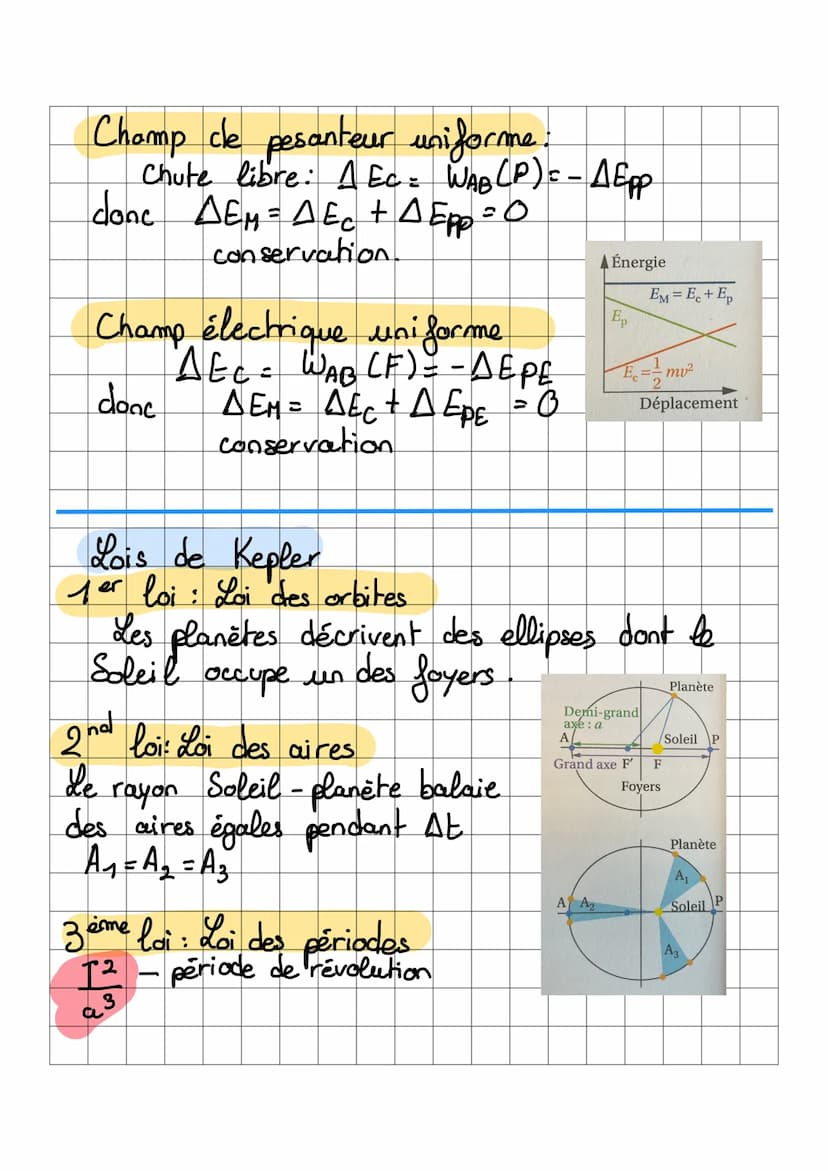 Champ de pesanteur uniforme :
Chute libre : Δ Ec = WAB (P) = - ΔEpp
donc ΔEM = Δ Ec + Δ Epp = 0
conservation.
Énergie
EM = Ec + Ep
Ep
Ec = 1/2 mv²
Déplacement
Champ électrique uniforme
ΔEc = WAB (F) = - ΔEPE
donc ΔEM = ΔEc + Δ EPE = 0
conservation
Lois de Kepler
1er loi : Loi des orbites
Les planètes décrivent des ellipses dont le
Soleil occupe un des foyers.
Planète
Demi-grand
axe : a
A Soleil P
Grand axe F' F
Foyers
2nd loi : Loi des aires
Le rayon Soleil - planète balaie
des aires égales pendant Δt
A1 = A2 = A3
Planète
A1
A A2 Soleil P
A3
3ème loi : Loi des périodes
T² — période de révolution
a³